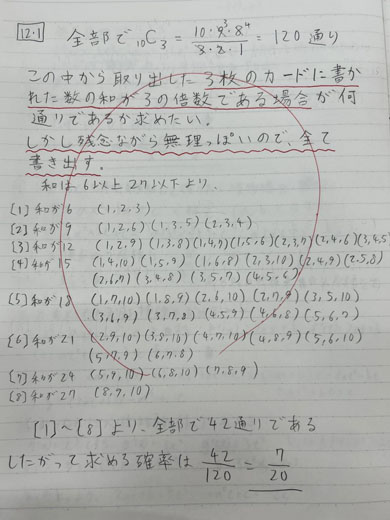 12・1 全部で ₁₀C₃ = 10・9・8 / 3・2・1 = 120 通り
この中から取り出した3枚のカードに書か
れた数の和が3の倍数である場合が何
通りであるか求めたい。
しかし残念ながら無理っぽいので、全て
書き出す。
和は 6以上 27以下より、
[1] 和が6 (1,2,3)
[2] 和が9 (1,2,6) (1,3,5) (2,3,4)
[3] 和が12 (1,2,9) (1,3,8) (1,4,7) (1,5,6) (2,3,7) (2,4,6) (3,4,5)
[4] 和が15 (1,4,10) (1,5,9) (1,6,8) (2,3,10) (2,4,9) (2,5,8)
(2,6,7) (3,4,8) (3,5,7) (4,5,6)
[5] 和が18 (1,7,10) (1,8,9) (2,6,10) (2,7,9) (3,5,10)
(3,6,9) (3,7,8) (4,5,9) (4,6,8) (5,6,7)
[6] 和が21 (2,9,10) (3,8,10) (4,7,10) (4,8,9) (5,6,10)
(5,7,9) (6,7,8)
[7] 和が24 (5,9,10) (6,8,10) (7,8,9)
[8] 和が27 (8,9,10)
[1]〜[8]より、全部で42通りである
したがって求める確率は 42/120 = 7/20